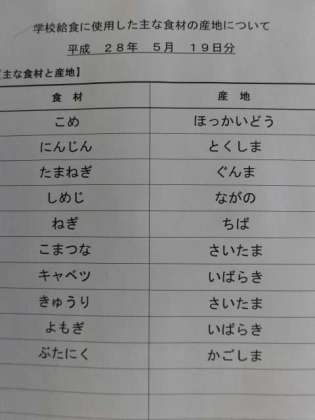 学校給食に使用した主な食材の産地について
平成 28年 5月 19日分
主な食材と産地】
食材 産地
こめ ほっかいどう
にんじん とくしま
たまねぎ ぐんま
しめじ ながの
ねぎ ちば
こまつな さいたま
キャベツ いばらき
きゅうり さいたま
よもぎ いばらき
ぶたにく かごしま